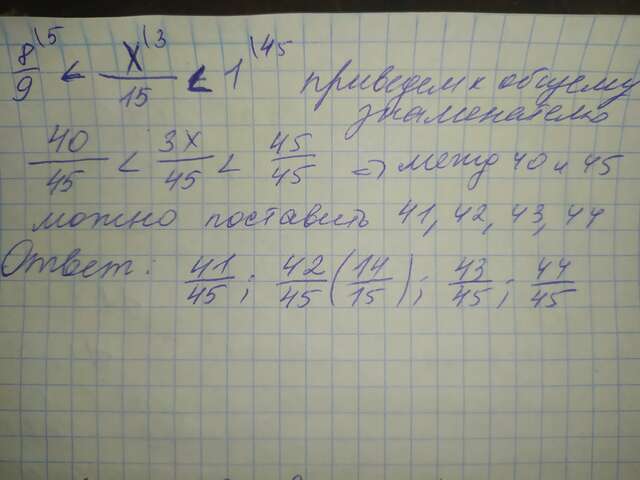 8/9 \5 < x/15 \3 < 1 \45 приведем к общему
знаменателю
40/45 < 3x/45 < 45/45 => межд 40 и 45
можно поставить 41, 42, 43, 44
Ответ: 41/45; 42/45 (14/15); 43/45; 44/45